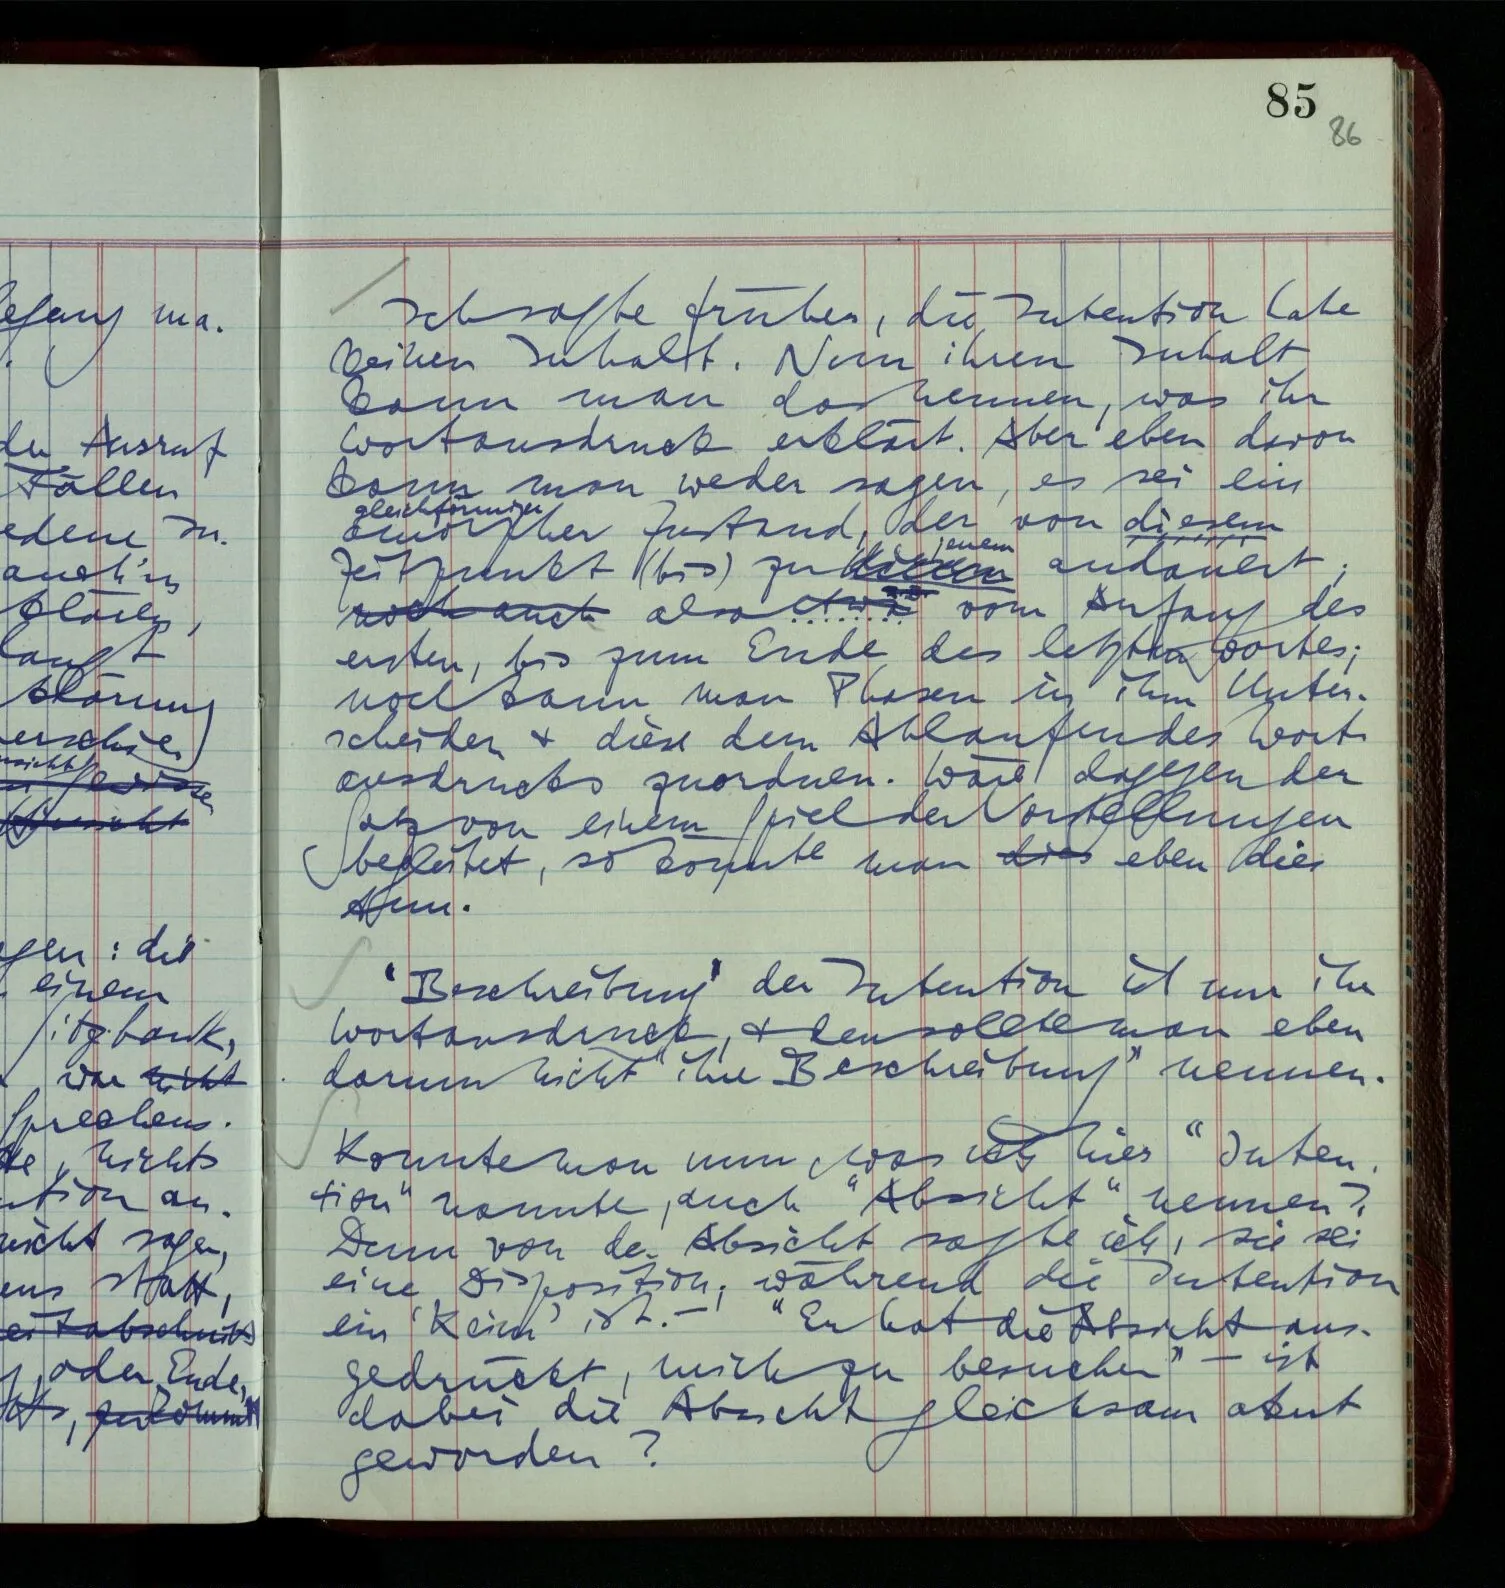 85
86
Ich sagte früher, die Intention habe
keinen Inhalt. Nun ihren Inhalt
kann man das nennen, was ihr
Wortausdruck erklärt. Aber eben davon
kann man weder sagen, es sei ein
gleichförmiger
amorpher Zustand, der von diesem
jenem
Zeitpunkt (bis) zu diesem andauert;
noch auch also etwa vom Anfang des
ersten, bis zum Ende des letzten Wortes;
noch kann man Phasen in ihm Unter-
scheiden & diese dem Ablaufen des Wort-
ausdrucks zuordnen. Wäre dagegen der
Satz von einem Spiel der Vorstellungen
begleitet, so könnte man dies eben dies
tun.
'Beschreibung' der Intention ist nur ihr
Wortausdruck, & den sollte man eben
darum nicht "ihre Beschreibung" nennen.
Konnte man nun, was ich hier "Inten-
tion" nannte, auch "Absicht" nennen?
Denn von der Absicht sagte ich, sie sei
eine Disposition, während die Intention
ein 'Keim' ist. – "Er hat die Absicht aus-
gedrückt, mich zu besuchen" – ist
dabei die Absicht gleichsam akut
geworden?
ma.
den Ausruf
Fällen
edene In-
klären,
langt
klärung
gen: die
einem
Sitzbank,
war nicht
Sprechens.
nichts
ntion an-
nicht sagen,
ens statt,
eitabschnitt
oder Ende,